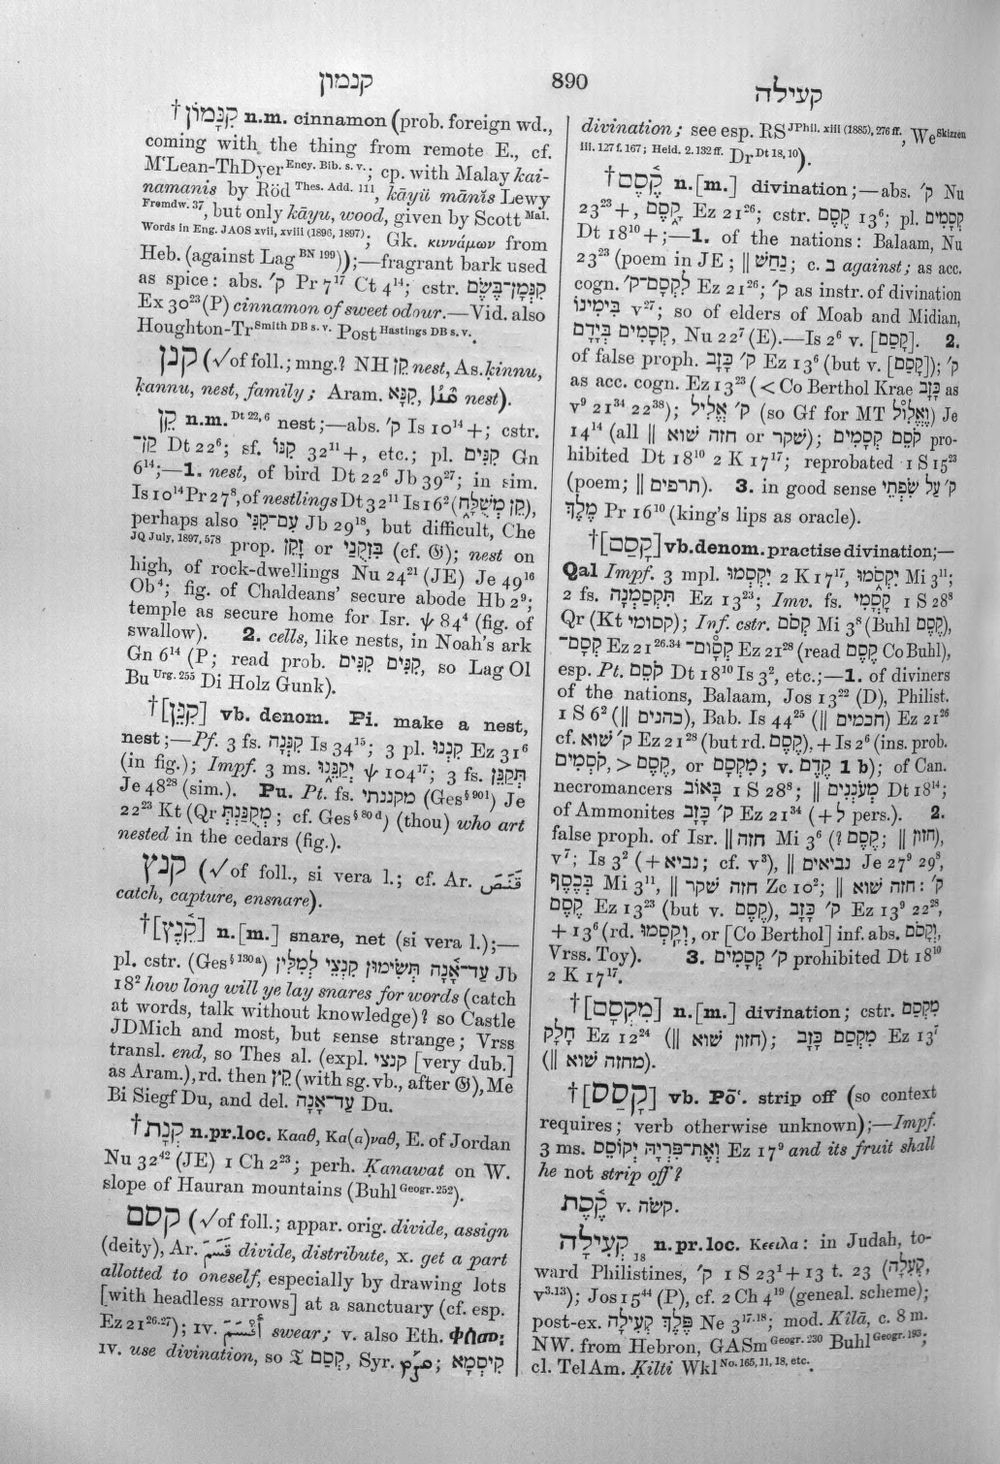 קנמון
890
קעילה
† קִנָּמוֹן n.m. cinnamon (prob. foreign wd.,
coming with the thing from remote E., cf.
M'Lean-ThDyer Ency. Bib. s. v.; cp. with Malay kai-
namanis by Röd Thes. Add. 111, kāyü mānĭs Lewy
Fremdw. 37, but only kāyu, wood, given by Scott Mal.
Words in Eng. JAOS xvii, xviii (1896, 1897); Gk. κιννάμων from
Heb. (against Lag BN 199));—fragrant bark used
as spice: abs. ק׳ Pr 7¹⁷ Ct 4¹⁴; cstr. קִנְּמָן־בֶּשֶׂם
Ex 30²³ (P) cinnamon of sweet odour.—Vid. also
Houghton-Tr Smith DB s. v. Post Hastings DB s. v.
קנן (√of foll.; mng.? NH קֵן nest, As. ḳinnu,
ḳannu, nest, family; Aram. קִנָּא, nest).
קֵן n.m. Dt 22, 6 nest;—abs. ק׳ Is 10¹⁴+; cstr.
קַן־ Dt 22⁶; sf. קִנּוֹ 32¹¹+, etc.; pl. קִנִּים Gn
6¹⁴;—1. nest, of bird Dt 22⁶ Jb 39²⁷; in sim.
Is 10¹⁴ Pr 27⁸, of nestlings Dt 32¹¹ Is 16² (קֵן מְשֻׁלָּח),
perhaps also עִם־קִנִּי Jb 29¹⁸, but difficult, Che
JQ July, 1897, 578 prop. זָקֵן or בִּזְקֻנַי (cf. 𝔊); nest on
high, of rock-dwellings Nu 24²¹ (JE) Je 49¹⁶
Ob⁴; fig. of Chaldeans' secure abode Hb 2⁹;
temple as secure home for Isr. ψ 84⁴ (fig. of
swallow). 2. cells, like nests, in Noah's ark
Gn 6¹⁴ (P; read prob. קִנִּים קִנִּים, so Lag Ol
Bu Urg. 255 Di Holz Gunk).
†[קִנֵּן] vb. denom. Pi. make a nest,
nest;—Pf. 3 fs. קִנְּנָה Is 34¹⁵; 3 pl. קִנְנוּ Ez 31⁶
(in fig.); Impf. 3 ms. יְקַנֵּנוּ ψ 104¹⁷; 3 fs. תְּקַנֵּן
Je 48²⁸ (sim.). Pu. Pt. fs. מקננתי (Ges § 90 l) Je
22²³ Kt (Qr מְקֻנַּנְתְּ; cf. Ges § 80 d) (thou) who art
nested in the cedars (fig.).
קנץ (√of foll., si vera l.; cf. Ar. قَنَصَ
catch, capture, ensnare).
†[קֶ֫נֶץ] n.[m.] snare, net (si vera l.);—
pl. cstr. (Ges § 130 a) עַד־אָ֫נָה תְּשִׂימוּן קִנְצֵי לְמִלִּין Jb
18² how long will ye lay snares for words (catch
at words, talk without knowledge)? so Castle
JDMich and most, but sense strange; Vrss
transl. end, so Thes al. (expl. קנצי [very dub.]
as Aram.), rd. then קֵץ (with sg. vb., after 𝔊), Me
Bi Siegf Du, and del. עַד־אָנָה Du.
† קְנָת n.pr.loc. Κααθ, Κα(α)ναθ, E. of Jordan
Nu 32⁴² (JE) 1 Ch 2²³; perh. Ḳanawat on W.
slope of Hauran mountains (Buhl Geogr. 252).
קסם (√of foll.; appar. orig. divide, assign
(deity), Ar. قَسَمَ divide, distribute, x. get a part
allotted to oneself, especially by drawing lots
[with headless arrows] at a sanctuary (cf. esp.
Ez 21²⁶·²⁷); IV. أَقْسَمَ swear; v. also Eth.
IV. use divination, so 𝔗 קְסַם, Syr.; קִיסְמָא
divination; see esp. RS JPhil. xiii (1885), 276 ff., We Skizzen
iii. 127 f. 167; Heid. 2. 132 ff. Dr Dt 18, 10).
† קֶ֫סֶם n.[m.] divination;—abs. ק׳ Nu
23²³+, קָ֑סֶם Ez 21²⁶; cstr. קֶסֶם 13⁶; pl. קְסָמִים
Dt 18¹⁰+;—1. of the nations: Balaam, Nu
23²³ (poem in JE; ‖ נַחַשׁ; c. ב against; as acc.
cogn. לִקְסָם־ק׳ Ez 21²⁶; ק׳ as instr. of divination
בִּימִינוֹ v²⁷; so of elders of Moab and Midian,
קְסָמִים בְּיָדָם, Nu 22⁷ (E).—Is 2⁶ v. [קָסַם]. 2.
of false proph. ק׳ כָּזָב Ez 13⁶ (but v. [קָסַם]); ק׳
as acc. cogn. Ez 13²³ (< Co Berthol Krae כָּזָב as
v⁹ 21³⁴ 22³⁸); ק׳ אֱלִיל (so Gf for MT וֶאֱלוּל) Je
14¹⁴ (all ‖ חזה שוא or שקר); קֹסֵם קְסָמִים pro-
hibited Dt 18¹⁰ 2 K 17¹⁷; reprobated 1 S 15²³
(poem; ‖ תרפים). 3. in good sense ק׳ עַל שִׂפְתֵי
מֶלֶךְ Pr 16¹⁰ (king's lips as oracle).
†[קָסַם] vb.denom. practise divination;—
Qal Impf. 3 mpl. יִקְסְמוּ 2 K 17¹⁷, יִקְסֹ֑מוּ Mi 3¹¹;
2 fs. תִּקְסַמְנָה Ez 13²³; Imv. fs. קָסֳמִי 1 S 28⁸
Qr (Kt קסומי); Inf. cstr. קְסֹם Mi 3⁶ (Buhl קֶסֶם),
קְסָם־ Ez 21²⁶·³⁴ קְסוֹם־ Ez 21²⁸ (read קֶסֶם Co Buhl),
esp. Pt. קֹסֵם Dt 18¹⁰ Is 3², etc.;—1. of diviners
of the nations, Balaam, Jos 13²² (D), Philist.
1 S 6² (‖ כהנים), Bab. Is 44²⁵ (‖ חכמים) Ez 21²⁶
cf. ק׳ שָׁוְא Ez 21²⁸ (but rd. קֶסֶם), + Is 2⁶ (ins. prob.
קֹסְמִים, > קֶסֶם, or מִקְסָם; v. קֶדֶם 1 b); of Can.
necromancers בָּאוֹב 1 S 28⁸; ‖ מְעֹנְנִים Dt 18¹⁴;
of Ammonites ק׳ כָּזָב Ez 21³⁴ (+ ל pers.). 2.
false proph. of Isr. ‖ חזה Mi 3⁶ (? קֶסֶם; ‖ חזון),
v⁷; Is 3² (+ נביא; cf. v³), ‖ נביאים Je 27⁹ 29⁸,
בְּכֶסֶף Mi 3¹¹, ‖ חזה שקר Zc 10²; ‖ חזה שוא: ק׳
קֶסֶם Ez 13²³ (but v. קֶסֶם), ק׳ כָּזָב Ez 13⁹ 22²⁸,
+ 13⁶ (rd. וְקָסְמוּ, or [Co Berthol] inf. abs. וְקָסֹם,
Vrss. Toy). 3. ק׳ קְסָמִים prohibited Dt 18¹⁰
2 K 17¹⁷.
†[מִקְסָם] n.[m.] divination; cstr. מִקְסַם
חָלָק Ez 12²⁴ (‖ חזון שוא); מִקְסַם כָּזָב Ez 13⁷
(‖ מחזה שוא).
†[קָסַס] vb. Pō‘. strip off (so context
requires; verb otherwise unknown);—Impf.
3 ms. וְאֶת־פִּרְיָהּ יְקוֹסֵס Ez 17⁹ and its fruit shall
he not strip off?
קֶ֫סֶת v. קשׂה.
קְעִילָה 18 n.pr.loc. Κεειλα: in Judah, to-
ward Philistines, ק׳ 1 S 23¹ + 13 t. 23 (קְעִלָה,
v³·¹³); Jos 15⁴⁴ (P), cf. 2 Ch 4¹⁹ (geneal. scheme);
post-ex. פֶּלֶךְ קְעִילָה Ne 3¹⁷·¹⁸; mod. Kîlâ, c. 8 m.
NW. from Hebron, GASm Geogr. 230 Buhl Geogr. 193;
cl. Tel Am. Ḳilti Wkl No. 165, 11, 18, etc.